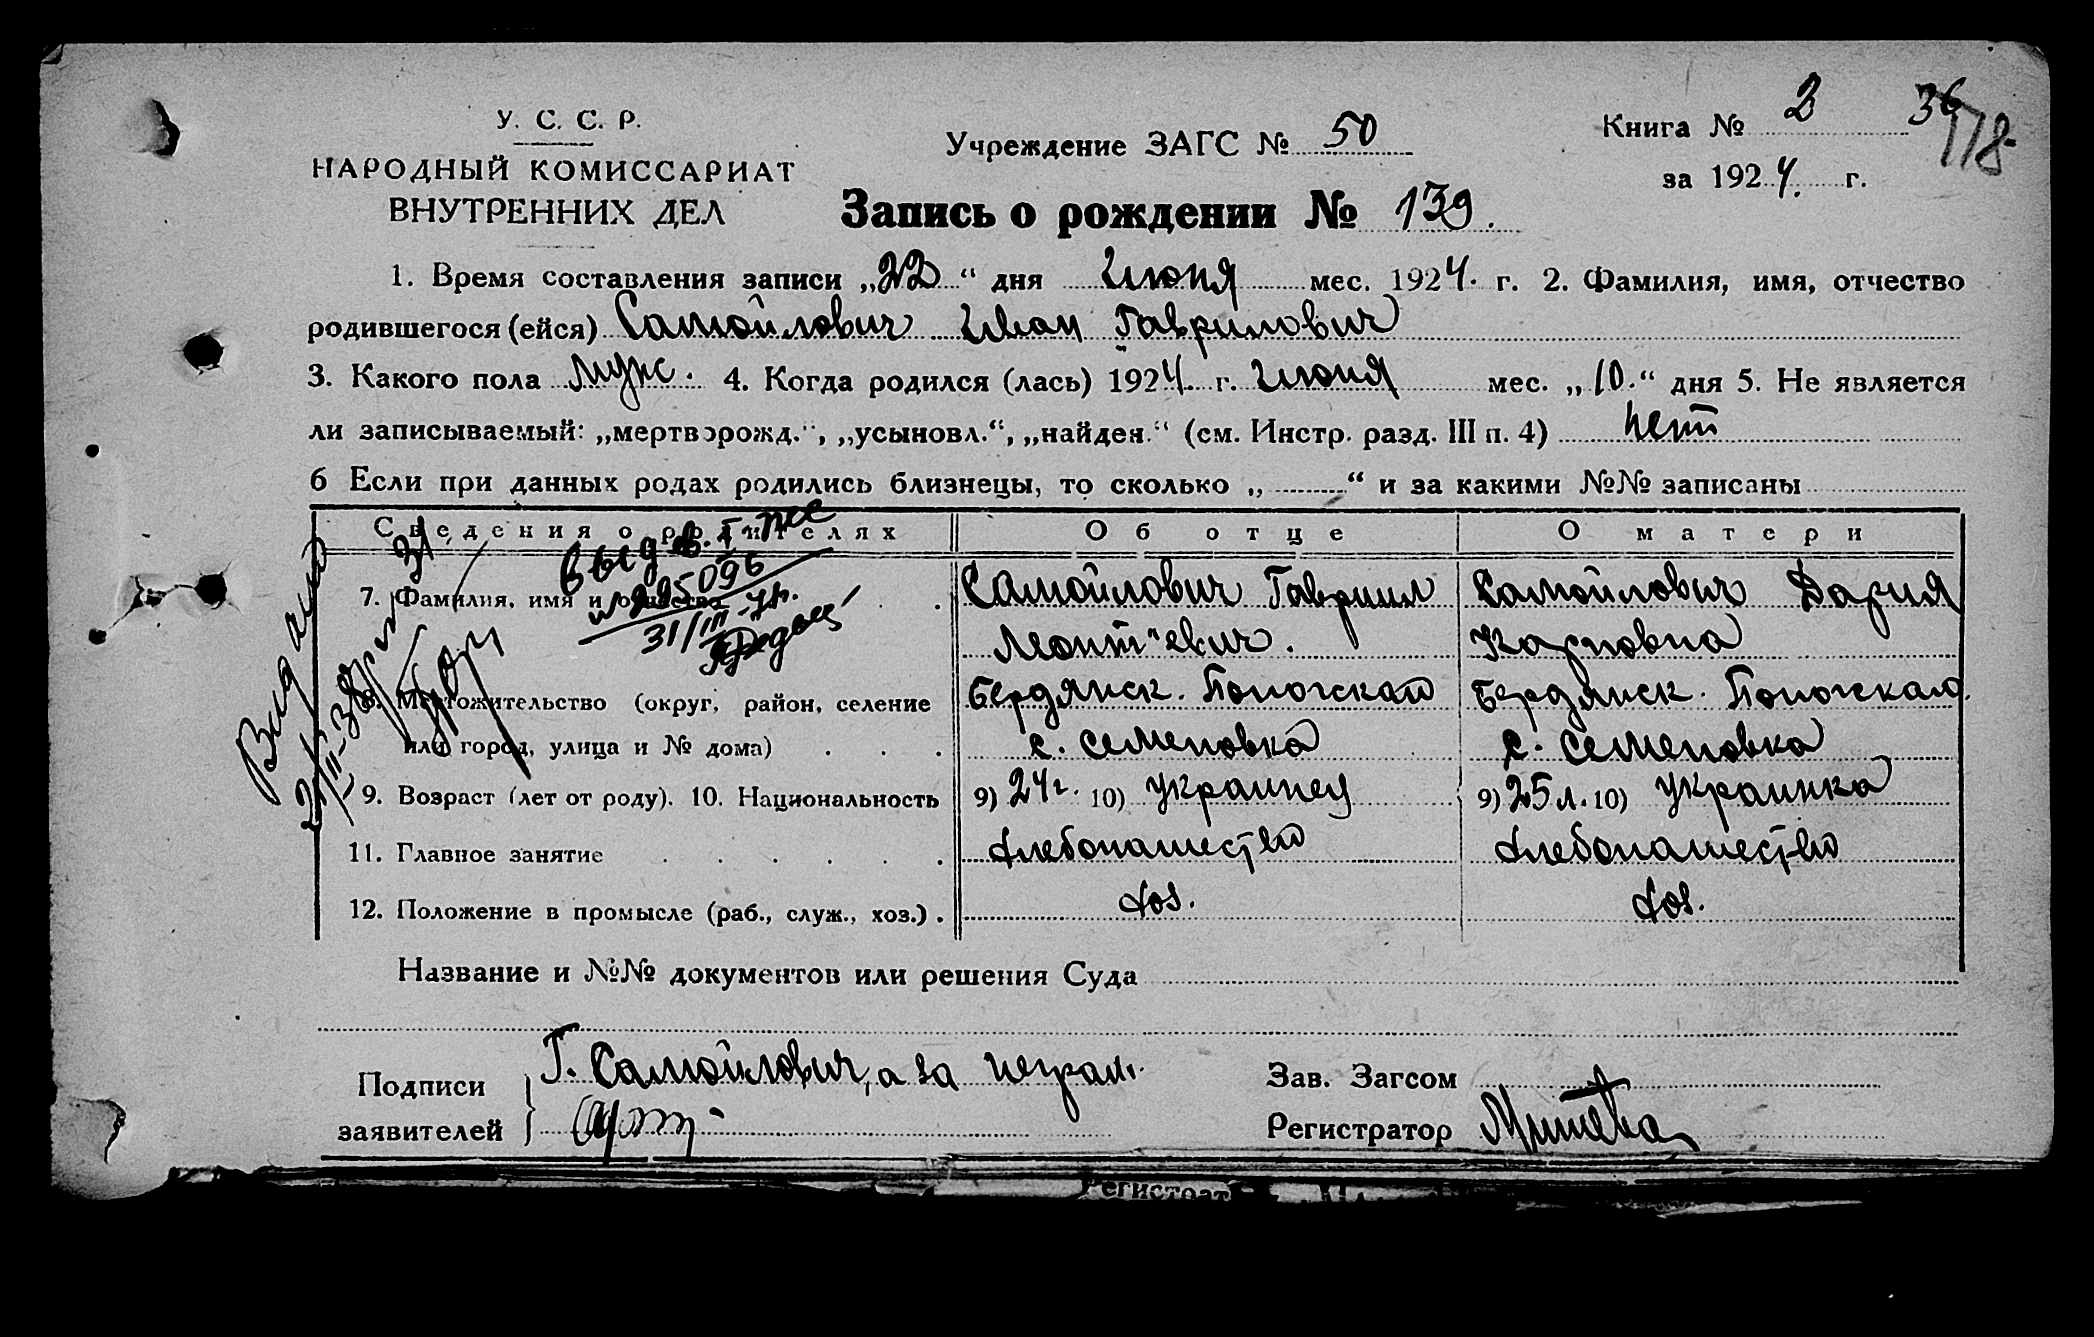 У. С. С. Р.
НАРОДНЫЙ КОМИССАРИАТ
ВНУТРЕННИХ ДЕЛ
Учреждение ЗАГС № 50
Книга № 2 36
за 1924. г.
Запись о рождении № 139.
1. Время составления записи „22“ дня июня мес. 1924. г. 2. Фамилия, имя, отчество
родившегося (ейся) Самойлович Иван Гаврилович
3. Какого пола муж. 4. Когда родился (лась) 1924 г. июня мес. „10.“ дня 5. Не является
ли записываемый: „мертворожд.“, „усыновл.“, „найден.“ (см. Инстр. разд. III п. 4) нет
6 Если при данных родах родились близнецы, то сколько „ “ и за какими №№ записаны
Сведения о родителях Об отце О матери
7. Фамилия, имя и отчество Самойлович Гавриил Самойлович Дария
Леонт"евич. Карповна
8. Местожительство (округ, район, селение Бердянск. Пологская Бердянск. Пологская
или город, улица и № дома) с. Семеновка с. Семеновка
9. Возраст (лет от роду). 10. Национальность 9) 24 г. 10) украинец 9) 25 л. 10) украинка
11. Главное занятие хлебопашество хлебопашество
12. Положение в промысле (раб., служ., хоз.) хоз. хоз.
№ 295096
31/III
Название и №№ документов или решения Суда
Подписи заявителей Г. Самойлович, а за неграм.
Зав. Загсом
Регистратор